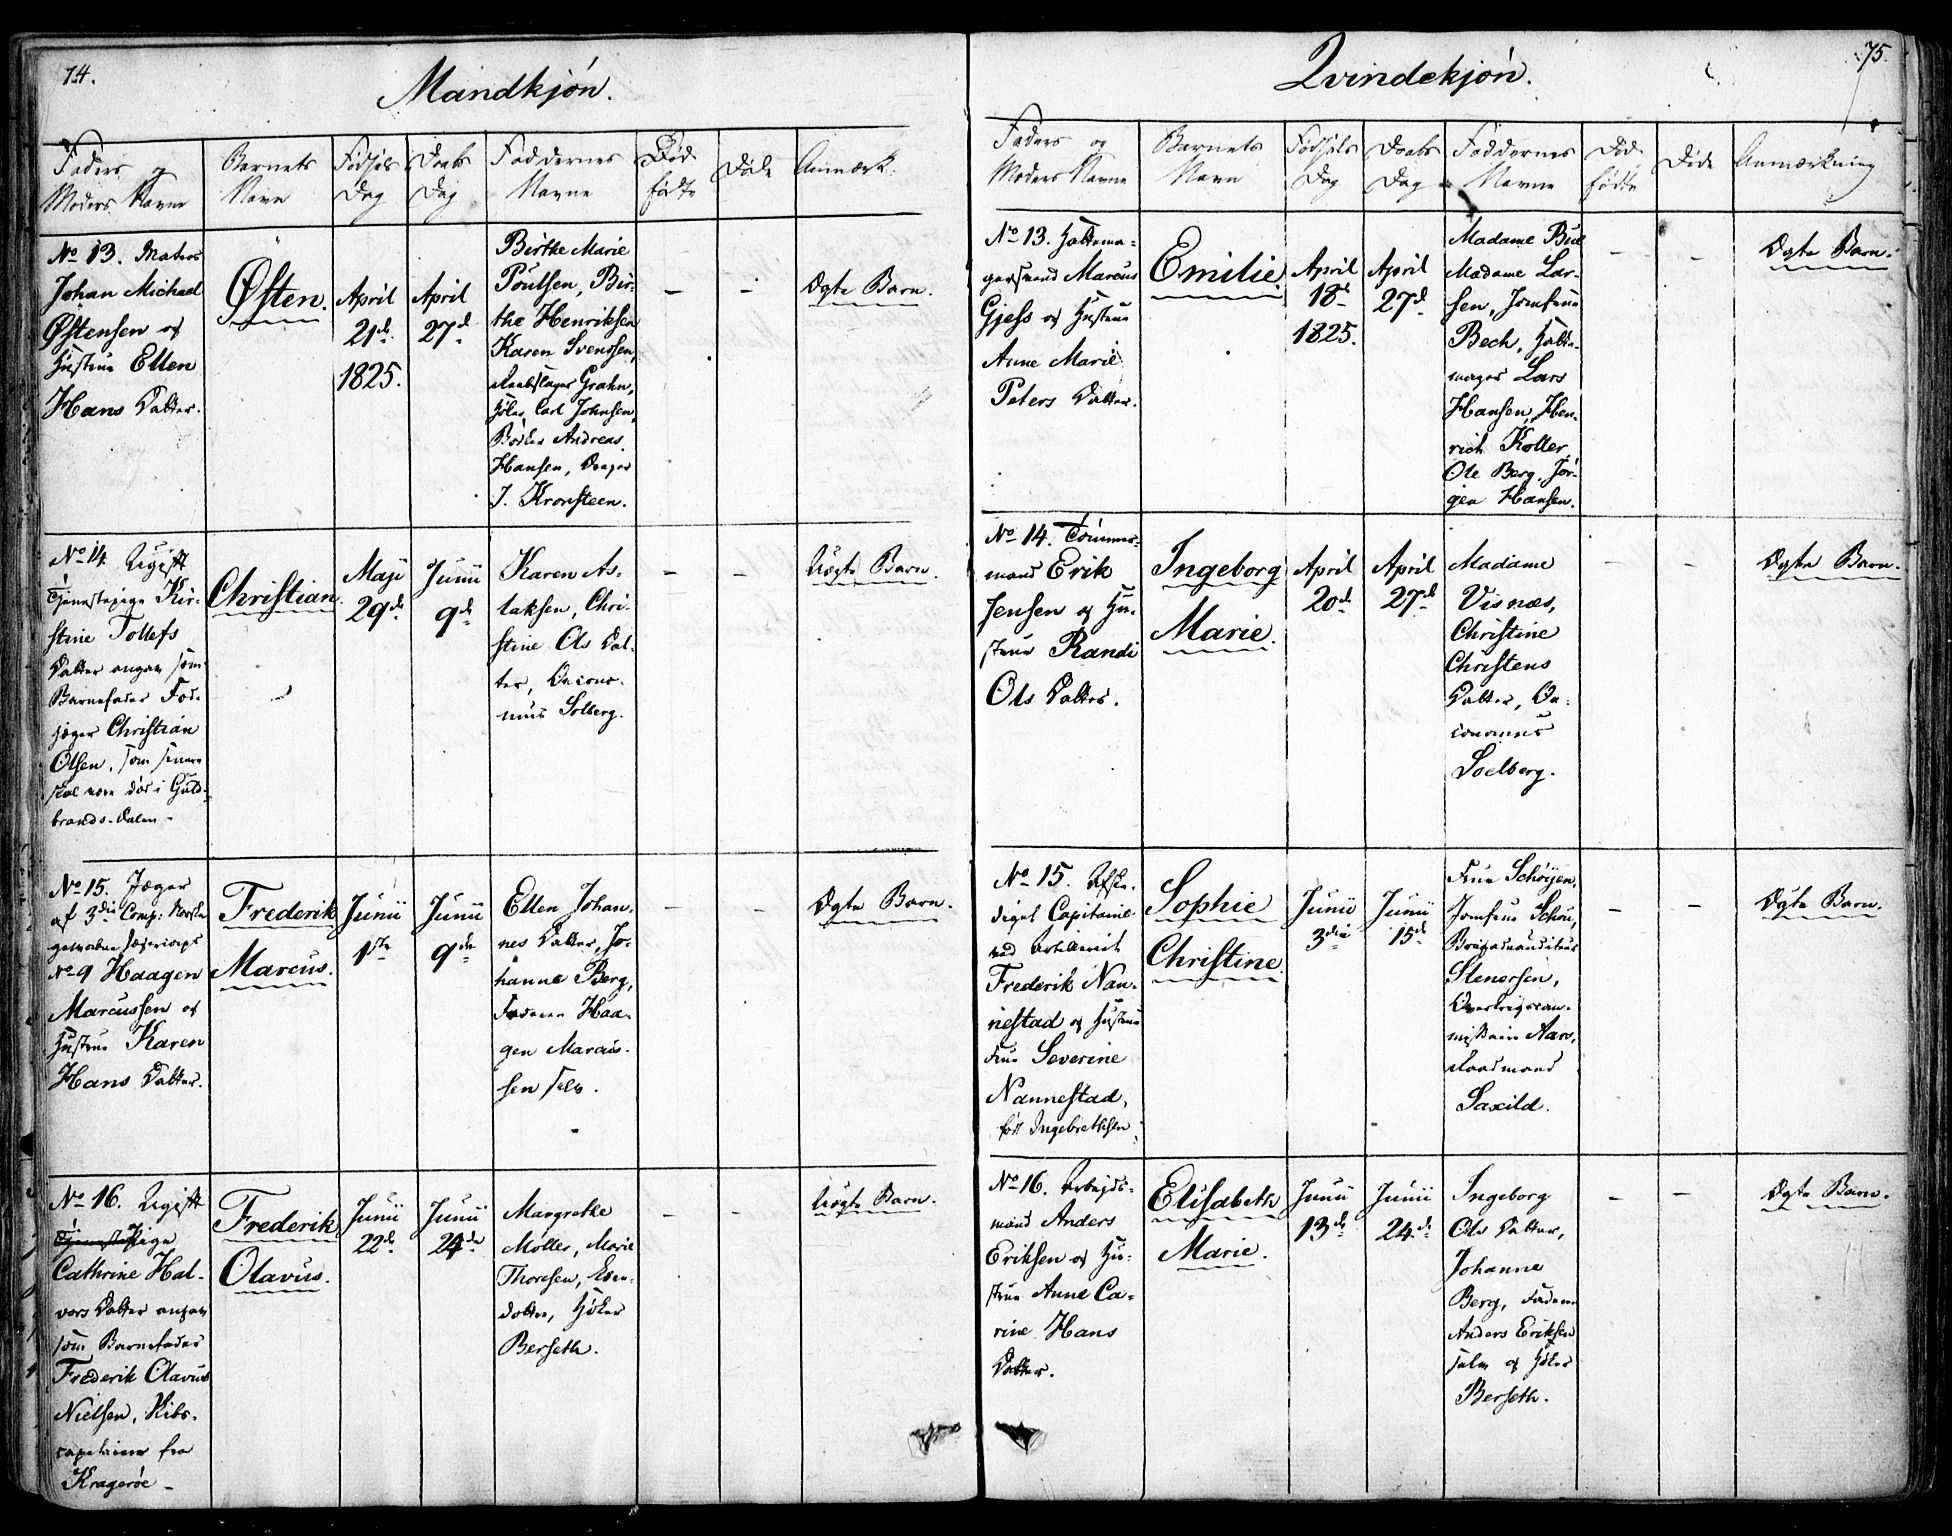 74.
Mandkjøn.
Faders og
Moders Navne
Barnets
Navn
Fødsels
Dag
Daabs
Dag
Faddernes
Navne
Død
fødte
Døde
Anmærk:
No 13. Matros
Johan Michael
Østensen og
Hustrue Ellen
Hans Datter.
Østen.
April
21de
1825.
April
27de
Birthe Marie
Poulsen, Bir-
the Henriksen
Karen Svendsen,
Grahn,
Carl Johnsen,
Andreas
Hansen,
J. Kronsteen.
–
–
Ægte Barn.
No 14. Ugift
Tjenestepige Kir-
stine Tollefs
Datter angav som
Barnefader Feld-
jæger Christian
Olsen, som senere
skal være død i Guld-
brands-Dalen –
Christian.
Maji
29de
Junii
9de
Karen As-
laksen, Chri-
stine Ols Dat-
ter, Oecono-
mus Solberg.
–
–
Uægte Barn.
No 15. Jæger
af 3die Comp: Norske
No 9 Haagen
Marcussen og
Hustrue Karen
Hans Datter.
Frederik
Marcus.
Junii
1ste
Junii
9de
Ellen Johan-
nes Datter, Jo-
hanne Berg,
Faderen Haa-
gen Marcus-
sen selv.
–
–
Ægte Barn.
No 16. Ugift
Tjenestepige
Cathrine Hal-
vors Datter angav
som Barnefader
Frederik Olavus
Nielsen, Skibs-
capitaine fra
Kragerøe –
Frederik
Olavus.
Junii
22de
Junii
24de
Margrethe
Møller, Marie
Thoresen,
Høker
Berseth.
–
–
Uægte Barn.
75.
Qvindekjøn.
Faders og
Moders Navne
Barnets
Navn
Fødsels
Dag
Daabs
Dag
Faddernes
Navne
Død
fødte
Døde
Anmærkning
No 13. Hattema-
gersvend Marcus
Gjess og Hustrue
Anne Marie
Peters Datter.
Emilie.
April
18de
1825.
April
27de
Madame
Madame Lar-
sen, Jomfrue
Bech, Hatte-
mager Lars
Hansen, Hen-
rich Koller
Ole Berg, Jør-
gen Hansen.
–
–
Ægte Barn.
No 14. Tømmer-
mand Erik
Jensen og Hu-
strue Randi
Ols Datter.
Ingeborg
Marie.
April
20de
April
27de
Madame
Visnæs,
Christine
Christens
Datter, Oe-
conomus
Soelberg.
–
–
Ægte Barn.
No 15. Afske-
diget Capitaine
ved Artilleriet
Frederik Nan-
nestad og Hustrue
Frue Severine
Nannestad,
født Ingebrethsen
Sophie
Christine.
Junii
3die
Junii
15de
Frue Schøyen,
Jomfrue Schou,
Stenersen,
Aars,
Raadmand
Saxild.
–
–
Ægte Barn.
No 16. Arbejds-
mand Anders
Eriksen og Hu-
strue Anne Ca-
rine Hans
Datter.
Elisabeth
Marie.
Junii
13de
Junii
24de
Ingeborg
Ols Datter,
Johanne
Berg, Faderen
Anders Eriksen
selv og Høker
Berseth.
–
–
Ægte Barn.